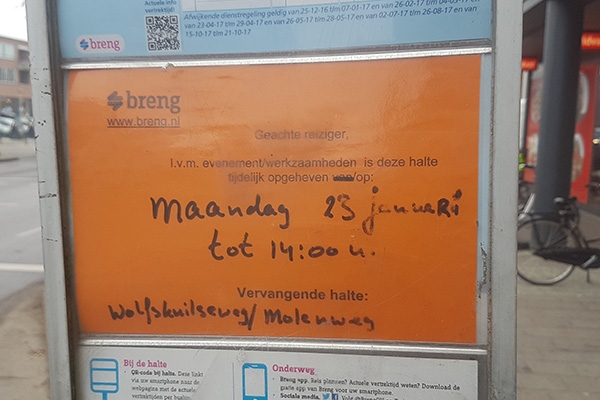 Actuele info
vertrektijd!
breng
Afwijkende dienstregeling geldig van 25-12-16 t/m 07-01-17 en van 26-02-17 t/m 04-03-17 en
van 23-04-17 t/m 29-04-17 en van 26-05-17 t/m 28-05-17 en van 02-07-17 t/m 26-08-17 en van
15-10-17 t/m 21-10-17
breng
www.breng.nl
Geachte reiziger,
I.v.m. evenement/werkzaamheden is deze halte
tijdelijk opgeheven van/op:
Maandag 23 januari
tot 14:00 u.
Vervangende halte:
Wolfskuilseweg/Molenweg
Bij de halte
QR-code bij halte. Deze linkt
via uw smartphone naar de
webpagina met de actuele
vertrektijden per
Onderweg
Breng app. Reis plannen? Actuele vertrektijd weten? Download de
gratis app van Breng voor uw smartphone.
Sociale media.